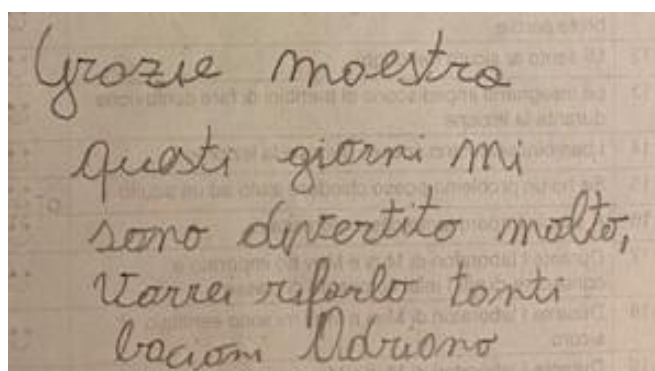 Grazie maestra
questi giorni mi
sono divertito molto,
Vorrei rifarlo tanti
bacioni Adriano